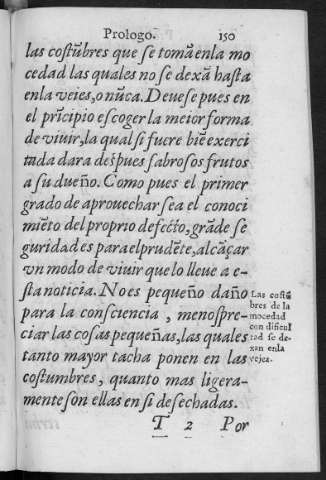 Prologo. 150
las costũbres que se tomã enla mo
cedad las quales no se dexã hasta
enla vejes, o nũca. Deuese pues en
el prĩcipio escoger la mejor forma
de viuir, la qual si fuere biẽ exerci
tada dara despues sabrosos frutos
a su dueño. Como pues el primer
grado de aprouechar sea el conoci
miẽto del proprio defecto, grãde se
guridad es para el prudẽte, alcãçar
vn modo de viuir que lo lleue a e-
sta noticia. No es pequeño daño
para la consciencia, menospre-
ciar las cosas pequeñas, las quales
tanto mayor tacha ponen en las
costumbres, quanto mas ligera-
mente son ellas en si desechadas.
Las costũ
bres de la
mocedad
con dificul
tad se de-
xan enla
vejez.
T 2 Por